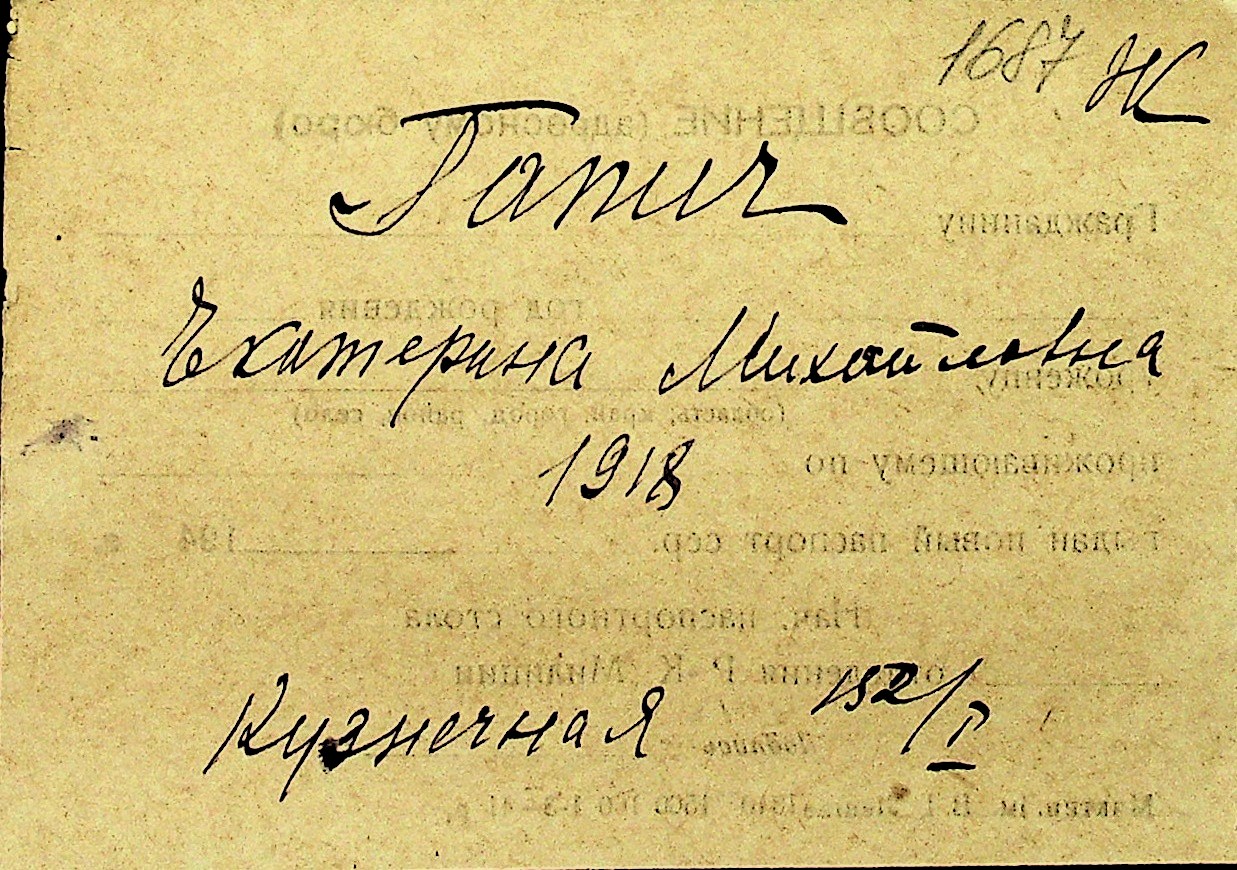 1687 Ж
Гапич
Екатерина Михайловна
1918
Кузнечная 152/I
СООБЩЕНИЕ (адресному бюро)
Гражданину
год рождения
(область, край, город, район, село)
проживающему по
выдан новый паспорт сер. 194 г.
Нач. паспортного стола
отделения Р-К Милиции
Подпись